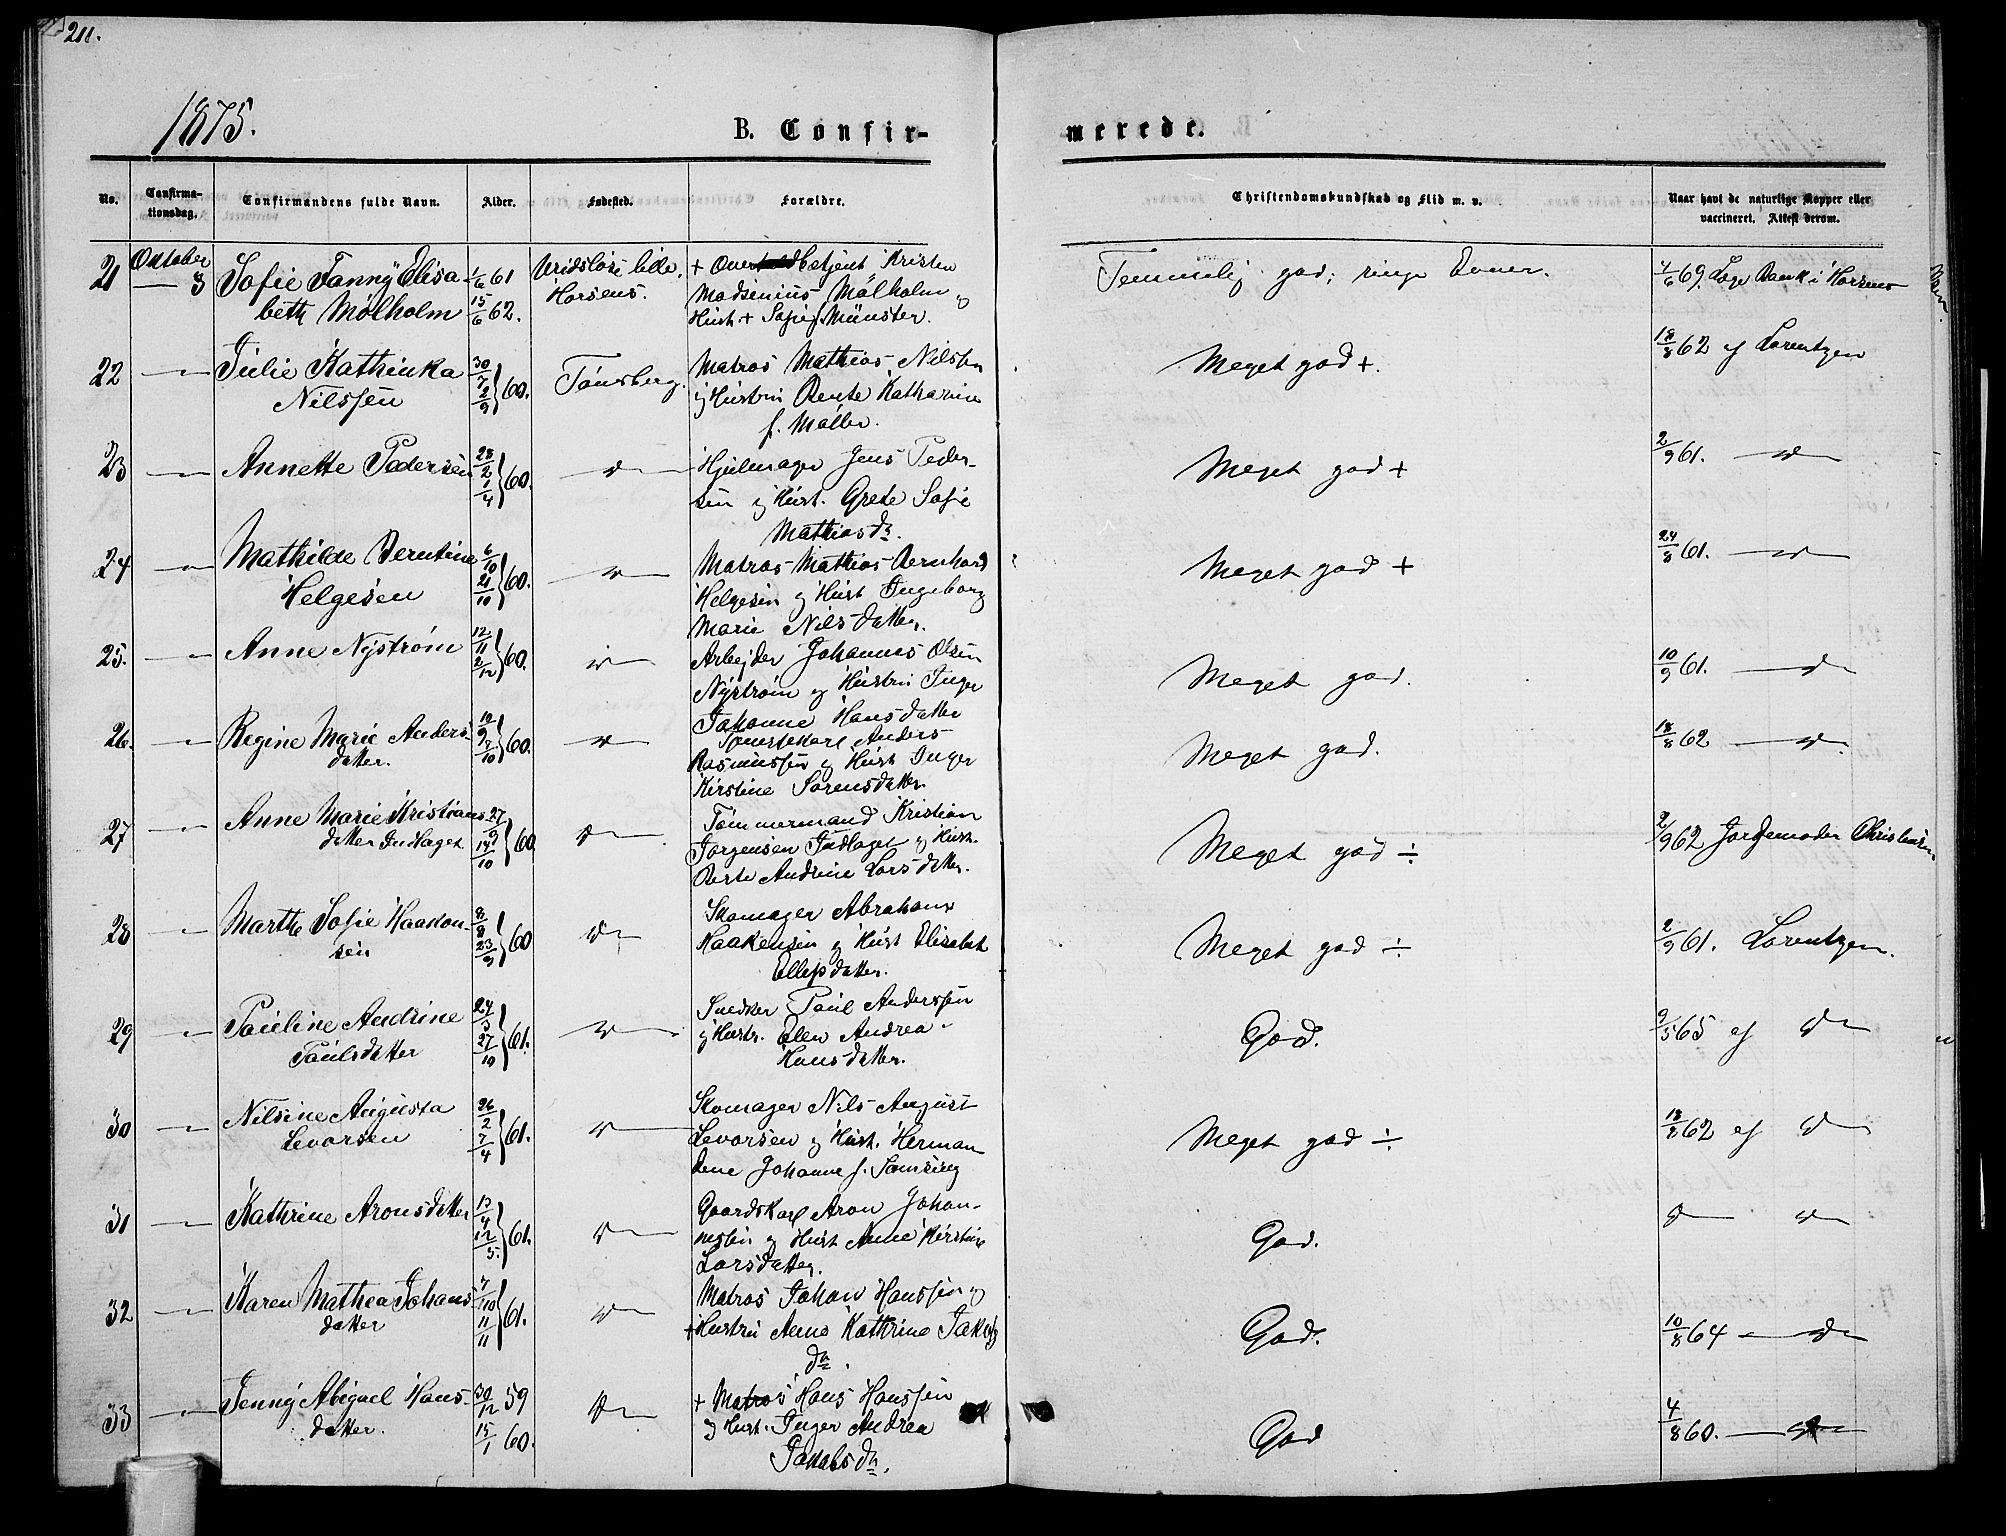 211.
1875.
B. Confir-
merede.
No.
Confirma-
tionsdag.
Confirmandens fulde Navn.
Alder.
Fødested.
Forældre.
Christendomskundskab og Flid m. v.
Naar havt de naturlige Kopper eller
vaccineret. Attest derom.
21 Oktober 3 Sofie Fanny Elisa-
beth Mølholm
1/6 61
15/6 62.
Vridsløse lille,
Horsens.
+ Overbetjent Kristen
Madsenius Mølholm og
Hust + Sofie f. Münster.
Temmelig god; ringe Evner.
4/6 69. Læge Bank i Horsens
22 Julie Kathinka
Nilssen
30/7 2/9 60.
Tønsberg.
Matros Mathias Nilssen
og Hustru Bente Katharine
f. Møller.
Meget god +.
18/8 62 af Lorentzen
23 Annette Pedersen
28/2 1/4 60.
Hjulmager Jens Peder-
sen og Hust. Grete Sofie
Mathiasdr.
Meget god +
2/9 61.
24 Mathilde Berntine
Helgesen
6/10 21/10 60.
Matros Mathias Bernhard
Helgesen og Hust Ingeborg
Marie Nilsdatter.
Meget god +
24/8 61.
25. Anne Nystrøm
12/11 2/12 60.
Arbejder Johannes Olsen
Nystrøm og Hustru Inger
Johanne Hansdatter
Meget god.
10/9 61.
26. Regine Marie Anders-
datter.
10/9 7/10 60.
Anders
Rasmussen og Hust Inger
Kirstine Sørensdatter.
Meget god.
18/8 62
27 Anne Marie Kristians-
datter Indlaget
27/9 14/10 60
Tømmermand Kristian
Jørgensen Indlaget og Hust.
Berte Andrine Larsdatter.
Meget god ÷
2/9 62 Jordemoder Christensen
28 Marthe Sofie Haakon-
sen
8/8 23/9 60
Skomager Abraham
Haakensen og Hust Elisabet
Ellefsdatter.
Meget god ÷
2/9 61. Lorentzen.
29 Pauline Andrine
Paulsdatter
24/3 27/10 61.
Snedker Paul Anderssen
og Hustr. Ellen Andrea
Hansdatter.
God.
9/5 65 af
30 Nilsine Augusta
Levorsen
26/2 7/4 61.
Skomager Nils August
Levorsen og Hust. Herman
dine Johanne f.
Meget god ÷
18/8 62 af
31 Kathrine Aronsdatter
17/4 12/5. 61.
Gaardskarl Aron Johan-
nesen og Hust Anne Kirstine
Larsdatter.
God.
32 Karen Mathea Johans
datter
7/10 11/11 61.
Matros Johan Hanssen og
+ Hustru Anne Kathrine Jakobs
dr.
God.
10/8 64
33 Jenny Abigael Hans-
datter.
30/12 59
15/1 60.
+ Matros Hans Hanssen
og Hust. Inger Andrea
Jakobsdr.
God
4/8 60.